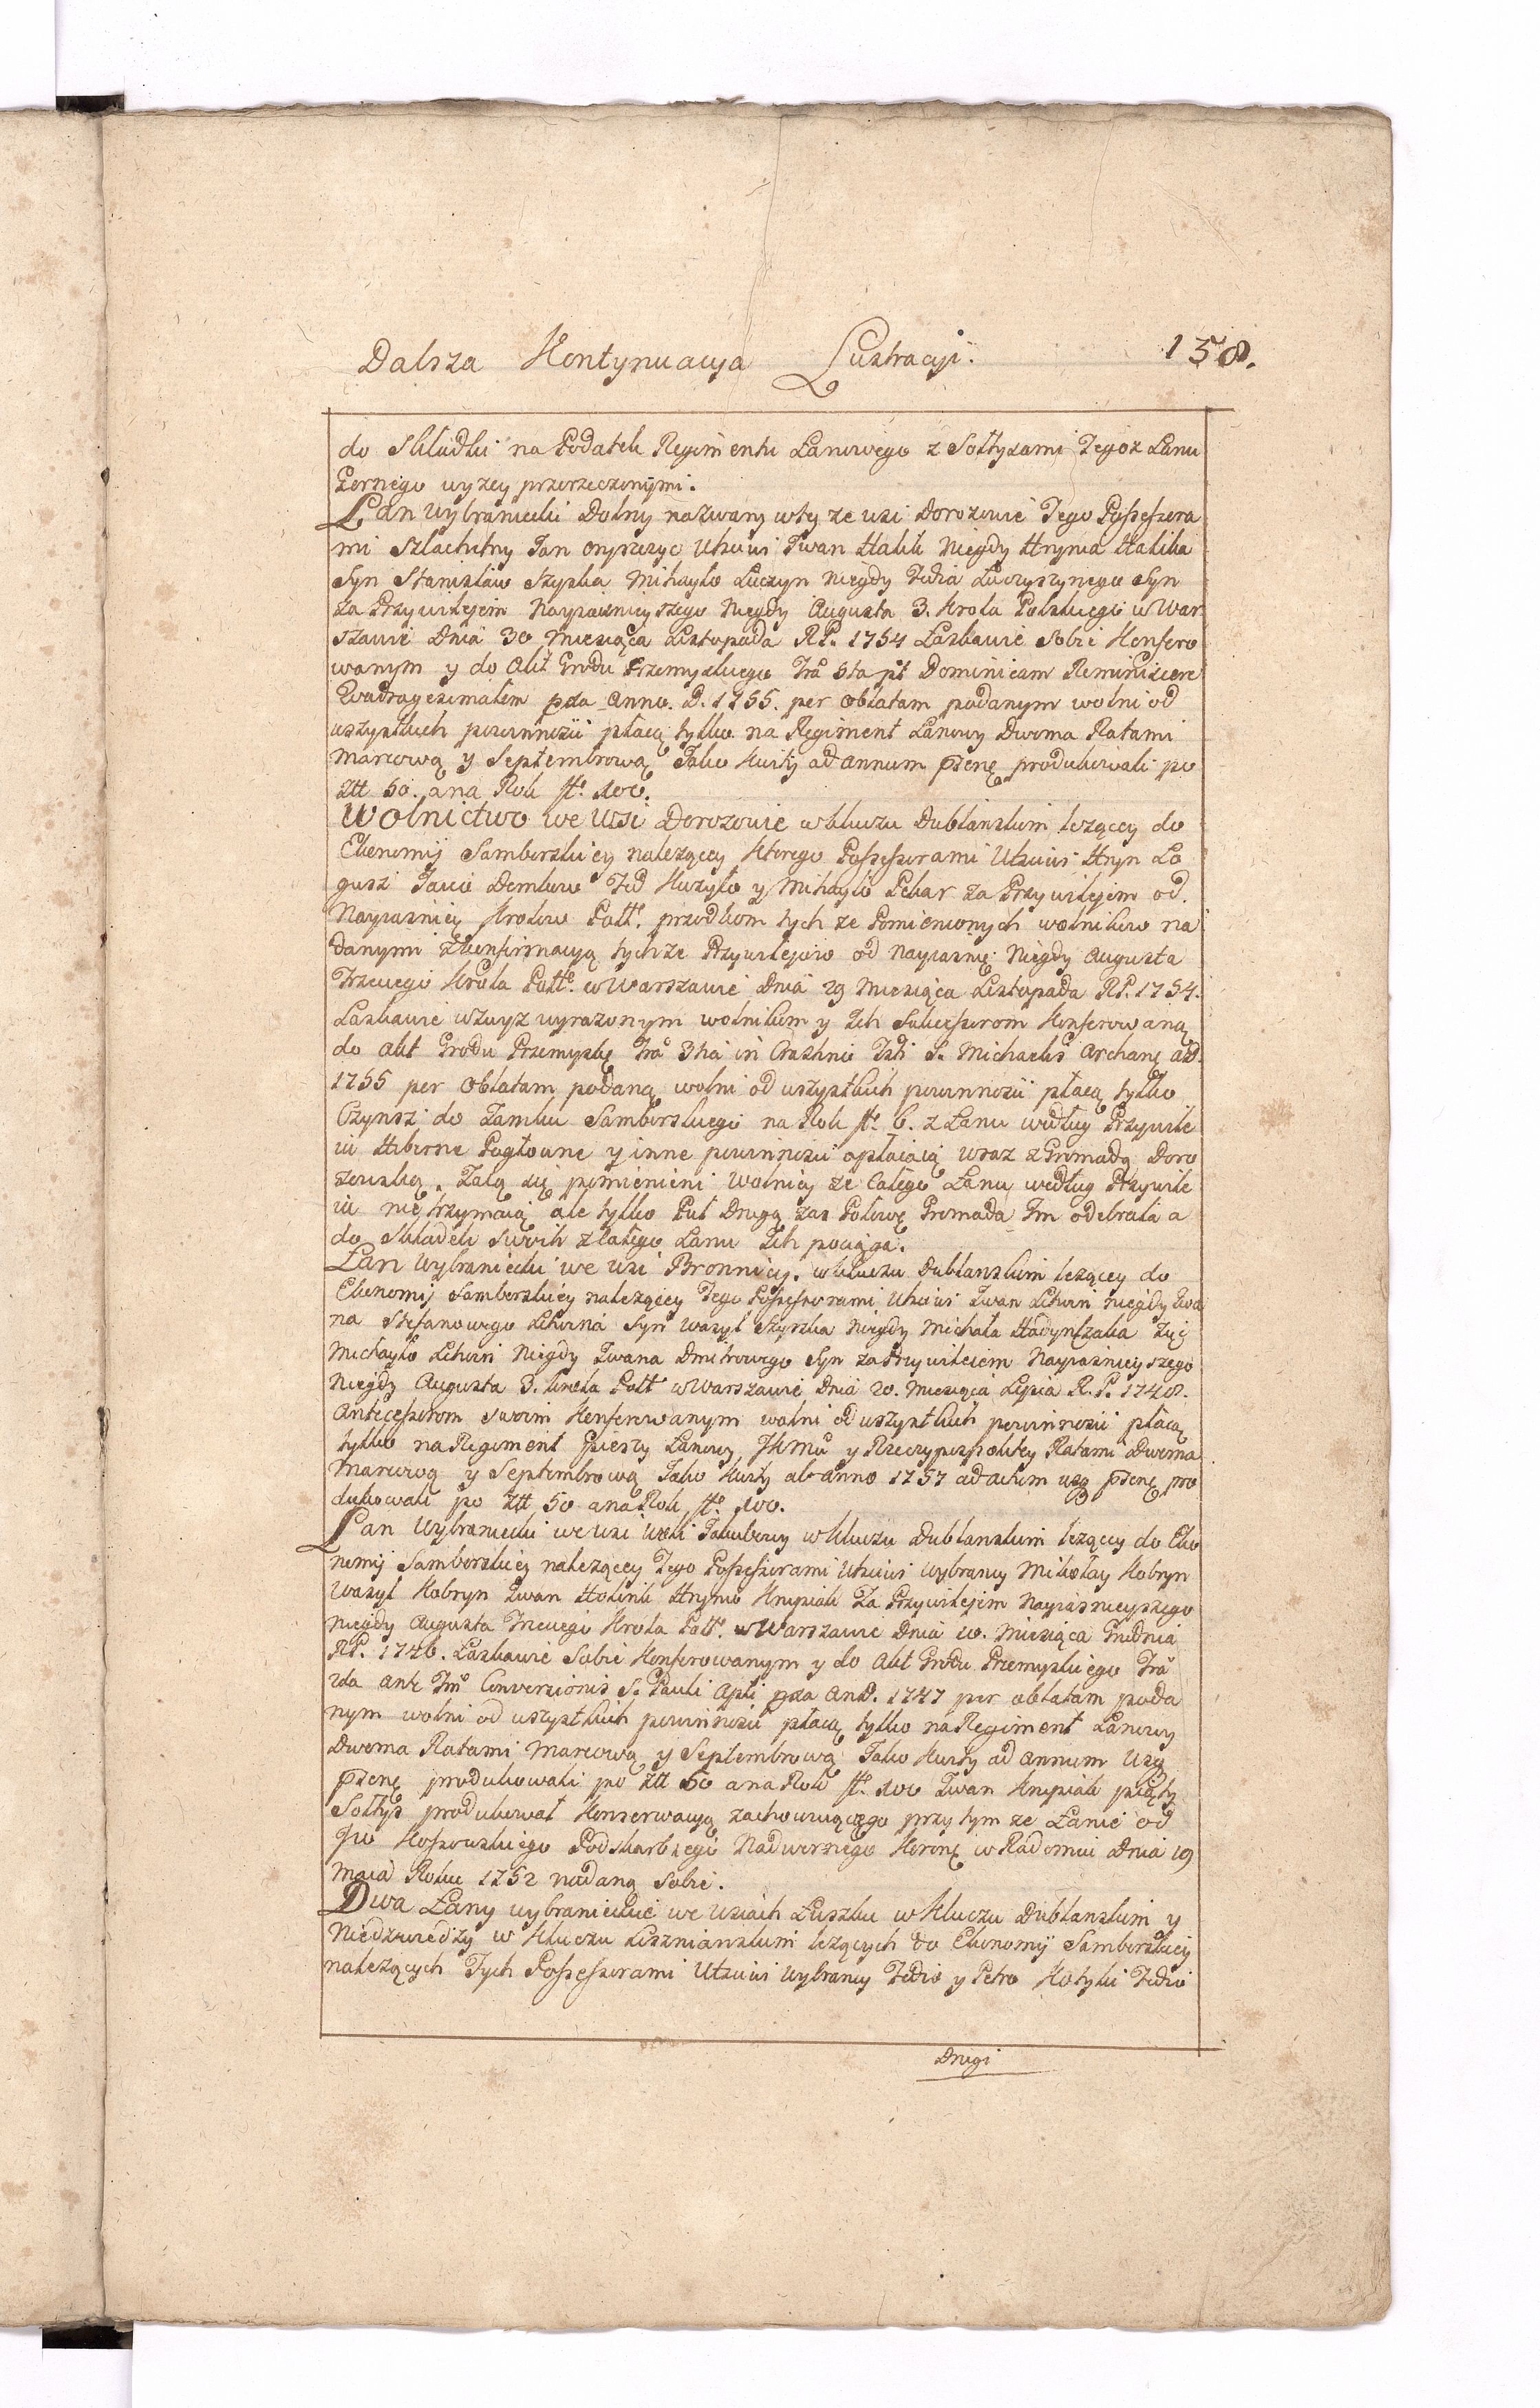 Dalsza Kontynuacya Lustracyi.
158.
do Składki na Podatek Regimentu Łanowego z Sołtysami Tegoż Łanu
Gornego wyzey przerzeczonymi.
Łan Wybraniecki Dolny nazwany wtey ze wsi Dorozowie Tego Possessora
mi Szlachetny Jan Uczciwi Iwan Halik Niegdy Hrynia Halika
Syn Stanisław Szyska Mihayło Luczyn Niegdy Fedia Luczyszynego Syn
za Przywilejem Nayiasnieyszego Niegdy Augusta 3. Krola Polskiego w War
szawie Dnia 30 Miesiąca Listopada RP. 1754 Łaskawie Sobie Konfero
wanym y do Akt Grodu Przemyskiego Fra 5ta pt Dominicam Reminiscere
Quadragesimalem pxa Anno. D. 1755. per oblatam podanym wolni od
wszystkich powinnosci płacą tylko na Regiment Łanowy Dwoma Ratami
Marcową y Septembrową Jako Kwity ad Annum Psenę produkowali po
Ztt 50. ana Rok ft. 100.
Wolnictwo we Wsi Dorozowie w kluczu Dublanskim lezącey do
Ekonomij Samborskiey nalezącey Ktorego Possessorami Uczciwi Hryn Lo
gusz Jacio Demkow Fed Kuzyło y Mihayło Pekar za Przywilejem od
Nayiasniey Krolow Poltt. przodkom tych ze Pomienionych wolnikow na
danymi z Konfirmacyą tychze Przywilejow od Nayiasnię Niegdy Augusta
Trzeciego Krola Poltt. w Warszawie Dnia 29 Miesiąca Listopada RP. 1754.
Łaskawie wzwysz wyrazonym wolnikom y Ich Sukcessorom Konferowaną
do Akt Grodu Przemyskę Fra 3tia in Crastino Fsti S. Michaelis Archanę AD.
1755 per Oblatam podaną wolni od wszystkich powinnosci płacą tylko
Czynsz do Zamku Samborskiego na Rok ft. 6. z Łanu według Przywile
iu Hiberne Pogłowne y inne powinnosci opłacaią wraz z Gromadą Doro
zowską. Zalą się pomienieni Wolnicy ze Całego Łanu według Przywile
iu nie trzymaią ale tylko Puł Drugą zas Połowę Gromada Im odebrała a
do Składek Swoich z Całego Łanu Ich pociąga.
Łan Wybraniecki we wsi Bronnicy. w kluczu Dublanskim lezącey do
Ekonomij Samborskiey nalezącey Tego Possessorami Uczciwi Iwan Litwin niegdy Iwa
na Stefanowego Litwina Syn Wasyl Szyszka Niegdy Michała Hadynczaka Zięc
Michayło Litwin Niegdy Iwana Dmitrowego Syn za Przywileiem Nayiasnieyszego
Niegdy Augusta 3. krola Poltt w Warszawie Dnia 20. Miesiąca Lipca R. P. 1748.
Antecessorom swoim Konferowanym wolni od wszystkich powinnosci płacą
tylko na Regiment Pieszy Łanowy JKMci y Rzeczypospolitey Ratami Dwoma
Marcową y Septembrową Jako Kwity ab Anno 1757 ad actum usq Psenę pro
dukowali po Ztt 50 ana Rok ft. 100.
Łan Wybraniecki we wsi Woli Jakubowy w kluczu Dublanskim lezący do Eko
nomij Samborskiey nalezącey Tego Possessorami Uczciwi Wybrancy Mikołay Kobryn
Wasyl Kobryn Iwan Holinik Hryńo Knypiak Za Przywilejem Nayiasnieyszego
niegdy Augusta Trzeciego Krola Poltt. w Warszawie Dnia 10. Miesiąca Grudnia
RP. 1746. Łaskawie Sobie Konferowanym y do Akt Grodu Przemyskiego Fra
2da ante Fm Conversionis S. Pauli Apli pxa AnD. 1747 per oblatam poda
nym wolni od wszystkich powinnosci płacą tylko na Regiment Łanowy
Dwoma Ratami Marcową y Septembrową Jako Kwity ad Annum Usq
Psenę produkowali po Ztt 50 ana Rok ft. 100 Iwan Knypiak piąty
Sołtys produkował Konserwacyą zachowuiącego przy tym ze Łanie od
Jw Kossowskiego Podskarbiego Nadwornego Koronę w Radomiu Dnia 19
Maia Roku 1752 nadaną Sobie.
Dwa Łany wybranieckie we wsiach Łuszku w kluczu Dublanskim y
Niedzwiedzy w kluczu Lisznianskim lezących do Ekonomij Samborskiey
nalezących Tych Possessorami Uczciwi Wybrancy Fedio y Petro Kotyki Fedio
Drugi